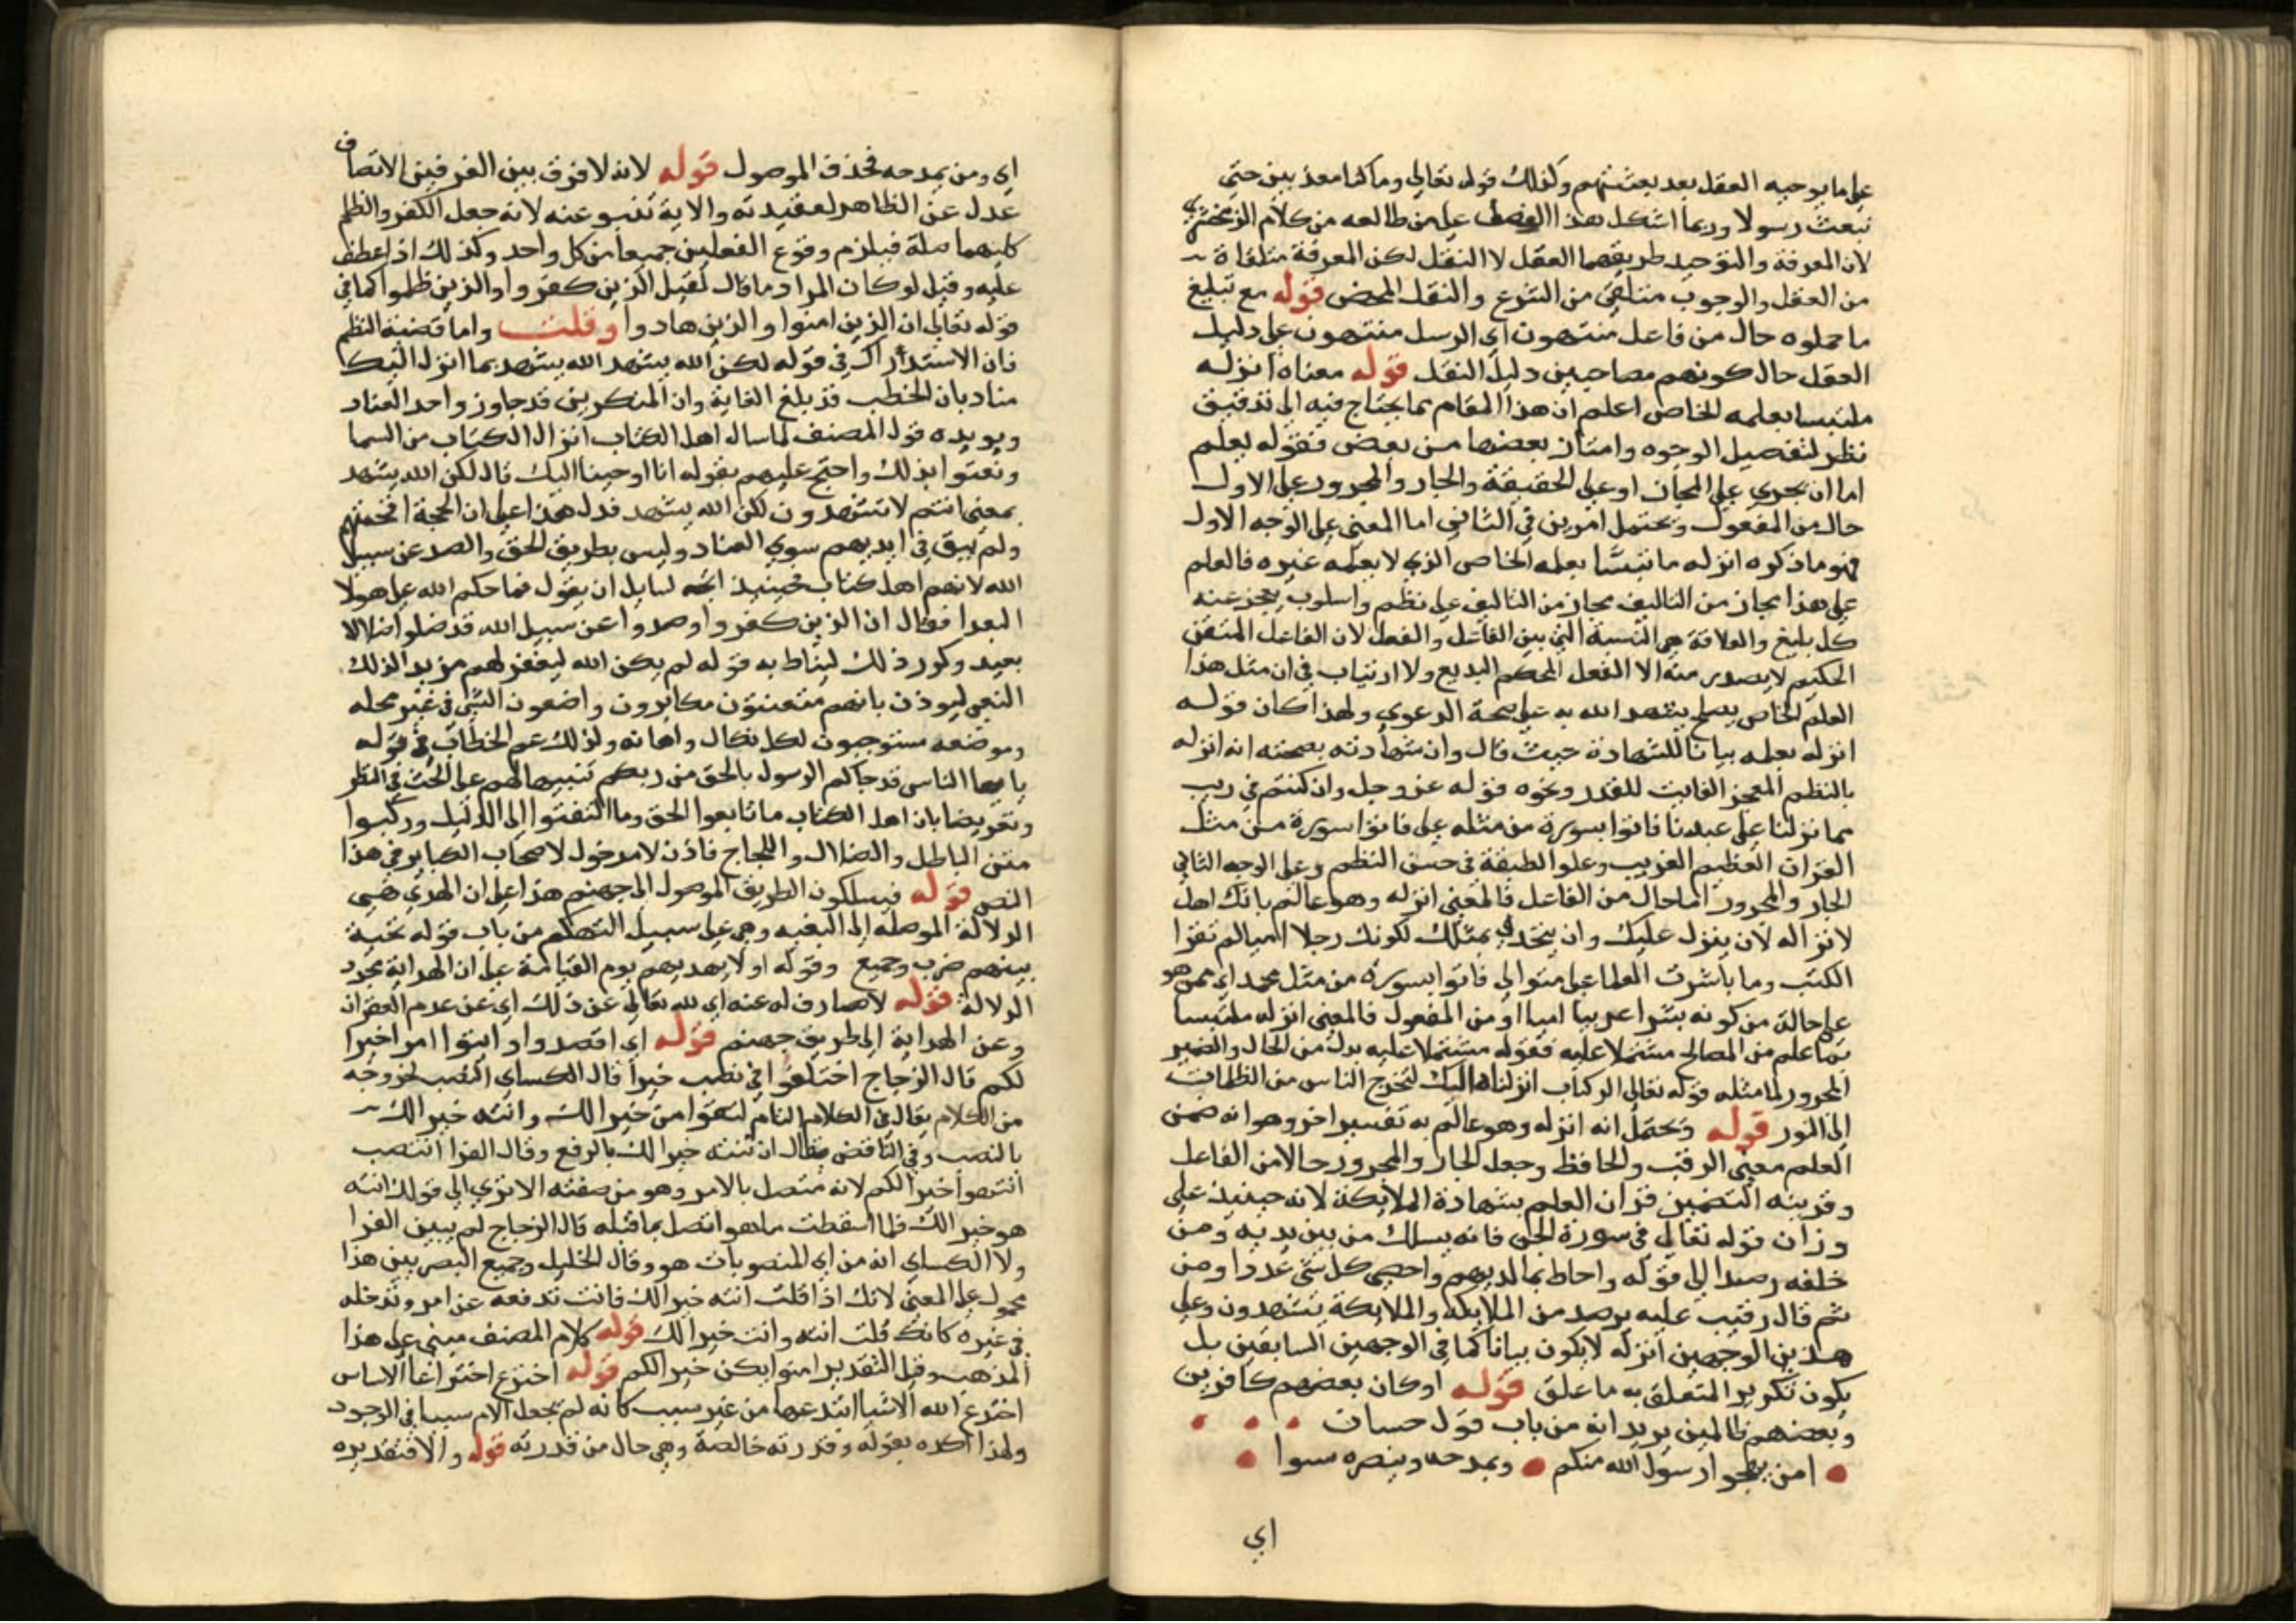 على ما يوجبه العقل بعد بعثتهم وكذلك قوله تعالى وما كنا معذبين حتى
نبعث رسولا وربما اشكل هذا الفصل على من طالعه من كلام الزمخشري
لان المعرفة والتوحيد طريقهما العقل لا النقل لكن المعرفة متلقاة
من العقل والوجوب متلقى من الشرع والنقل المحض قوله مع تبليغ
ما حملوه حال من فاعل منتهون اي الرسل منتهون على دليل
العقل حال كونهم مصاحبين دليل النقل قوله معناه انزله
ملتبسا بعلمه الخاص اعلم ان هذا المقام مما يحتاج فيه الى تدقيق
نظر لتفصيل الوجوه وامتاز بعضها من بعض فقوله بعلم
اما ان يجري على المجاز او على الحقيقة والجار والمجرور على الاول
حال من المفعول ويحتمل امرين في الثاني اما المعنى على الوجه الاول
فهو ما ذكره انزله ملتبسا بعلمه الخاص الذي لا يعلمه غيره فالعلم
على هذا مجاز من التاليف مجاز من التاليف على نظم واسلوب يعجز عنه
كل بليغ والعلاقة هي النسبة التي بين الفاعل والفعل لان الفاعل المتقن
الحكيم لا يصدر منه الا الفعل المحكم البديع ولا ارتياب في ان مثل هذا
العلم الخاص يصلح يشهد الله به على صحة الدعوي ولهذا كان قوله
انزله بعلمه بيانا للشهادة حيث قال وان شهادته بصحته انه انزله
بالنظم المعجز الفايت للقدر ونحوه قوله عز وجل وان كنتم في ريب
مما نزلنا على عبدنا فاتوا بسورة من مثله على فاتوا بسورة من مثل
القران العظيم الغريب وعلو الطبقة في حسن النظم وعلى الوجه الثاني
الجار والمجرور اما حال من الفاعل فالمعنى انزله وهو عالم بانك اهل
لانزاله لان ينزل عليك وان يتحدي بمثلك لكونك رجلا اميا لم تقرا
الكتب وما باشرت العلما على منوالي فاتوا بسورة من مثل محمد اي ممن هو
على حالة من كونه بشرا عربيا اميا او من المفعول فالمعنى انزله ملتبسا
بما علم من المصالح مشتملا عليه فقوله مشتملا عليه بدل من الحال والضمير
المجرور لما مثله قوله تعالى الر كتاب انزلناه اليك لتخرج الناس من الظلمات
الى النور قوله ويحتمل انه انزله وهو عالم به تفسير اخر وهو انه ضمن
العلم معنى الرقيب والحافظ وجعل الجار والمجرور حالا من الفاعل
وقرينه التضمين قران العلم بشهادة الملايكة لانه حينيذ على
وزان قوله تعالى في سورة الجن فانه يسلك من بين يديه ومن
خلفه رصدا الى قوله واحاط بما لديهم واحصى كل شي عددا ومن
ثم قال رقيب عليه برصد من الملايكه والملايكة يشهدون وعلى
هذين الوجهين انزله لا يكون بيانا كما في الوجهين السابقين بل
يكون تكرير المتعلق به ما علق قوله او كان بعضهم كافرين
وبعضهم ظالمين يريد انه من باب قول حسان
امن يهجوا رسول الله منكم ويمدحه وينصره سوا
اي
اي ومن يمدحه فحذف الموصول قوله لانه لا فرق بين الفريقين الاتصاف
عدل عن الظاهر لعقيدته والاية تنبو عنه لانه جعل الكفر والظلم
كليهما صلة فيلزم وقوع الفعلين جميعا من كل واحد وكذلك اذا عطف
عليه وقيل لو كان المراد ما قال لقيل الذين كفروا والذين ظلموا كما في
قوله تعالى ان الذين امنوا والذين هادوا وقلت واما قضية النظم
فان الاستدراك في قوله لكن الله يشهد الله يشهد بما انزل اليك
مناد بان الخطب قد بلغ الغاية وان المنكرين قد جاوزوا حد العناد
ويويده قول المصنف لما سال اهل الكتاب انزال الكتاب من السما
وتعتنوا بذلك واحتج عليهم بقوله انا اوحينا اليك قال لكن الله يشهد
بمعنى انتم لا تشهدون لكن الله يشهد فدل هذا على ان الحجة افحمتهم
ولم يبق في ايديهم سوى العناد وليس بطريق الحق والصد عن سبيل
الله لانهم اهل كتاب فحينيذ اتجه لسايل ان يقول فما حكم الله على هولا
البعدا فقال ان الذين كفروا وصدوا عن سبيل الله قد ضلوا ضلالا
بعيد وكرر ذلك ليناط به قوله لم يكن الله ليغفر لهم مزيدا لذلك
النعي ليوذن بانهم متعنتون مكابرون واضعون الشي في غير محله
وموضعه مستوجبون لكل نكال واهانه ولذلك عم الخطاب في قوله
يا ايها الناس قد جاكم الرسول بالحق من ربكم تنبيها لهم على الحث في النظر
وتعريضا بان اهل الكتاب ما تابعوا الحق وما التفتوا الى الدليل وركبوا
متن الباطل والضلال واللجاج فاذن لا مدخول لاصحاب الكباير في هذا
النص قوله فيسلكون الطريق الموصل الى جهنم هذا على ان الهدي هي
الدلالة الموصلة الى البغيه وهي على سبيل التهكم من باب قوله تحية
بينهم ضرب وجميع وقوله او لا يهديهم يوم القيامة على ان الهداية مجرد
الدلالة قوله لا صارف له عنه اي لله تعالى عن ذلك اي عن عدم الغفران
وعن الهداية الى طريق جهنم قوله اي اقصدوا وايتوا امرا خيرا
لكم قال الزجاج اختلفوا في نصب خيرا قال الكساي انتصب لخروجه
من الكلام يقال في الكلام التام لتقومن خيرا لك وانته خيرا لك
بالنصب وفي الناقص يقال ان تنته خير لك بالرفع وقال الفرا انتصب
انتهوا خيرا لكم لانه متصل بالامر وهو من صفته الا تري الى قولك انته
هو خير لك فلما اسقطت هو اتصل بما قبله قال الزجاج لم يبين الفرا
ولا الكساي انه من اي المنصوبات هو وقال الخليل وجميع البصريين هذا
محمول على المعنى لانك اذا قلت انته خيرا لك فانت تدفعه عن امر وتدخله
في غيره كانك قلت انته وات خيرا لك قوله كلام المصنف مبني على هذا
المذهب وقيل التقدير امنوا يكن خيرا لكم قوله اخترع اختراعا الاساس
اخترع الله الاشيا ابتدعها من غير سبب كانه لم يجعل الام سببا في الوجود
ولهذا اكده بقوله وقدرته خالصة وهي حال من قدرته قوله والا فتقديره